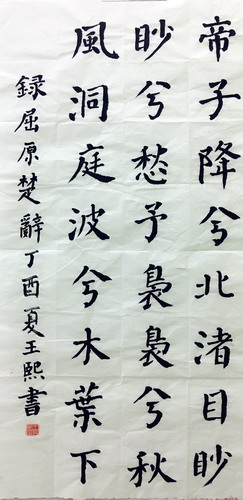 帝子降兮北渚目眇
眇兮愁予袅袅兮秋
風洞庭波兮木葉下
録屈原楚辭丁酉夏王熙書